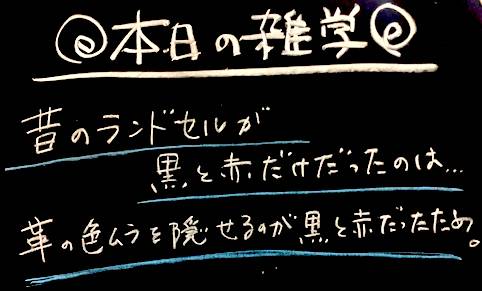 本日の雑学
昔のランドセルが
黒と赤だけだったのは...
革の色ムラを隠せるのが黒と赤だったため。